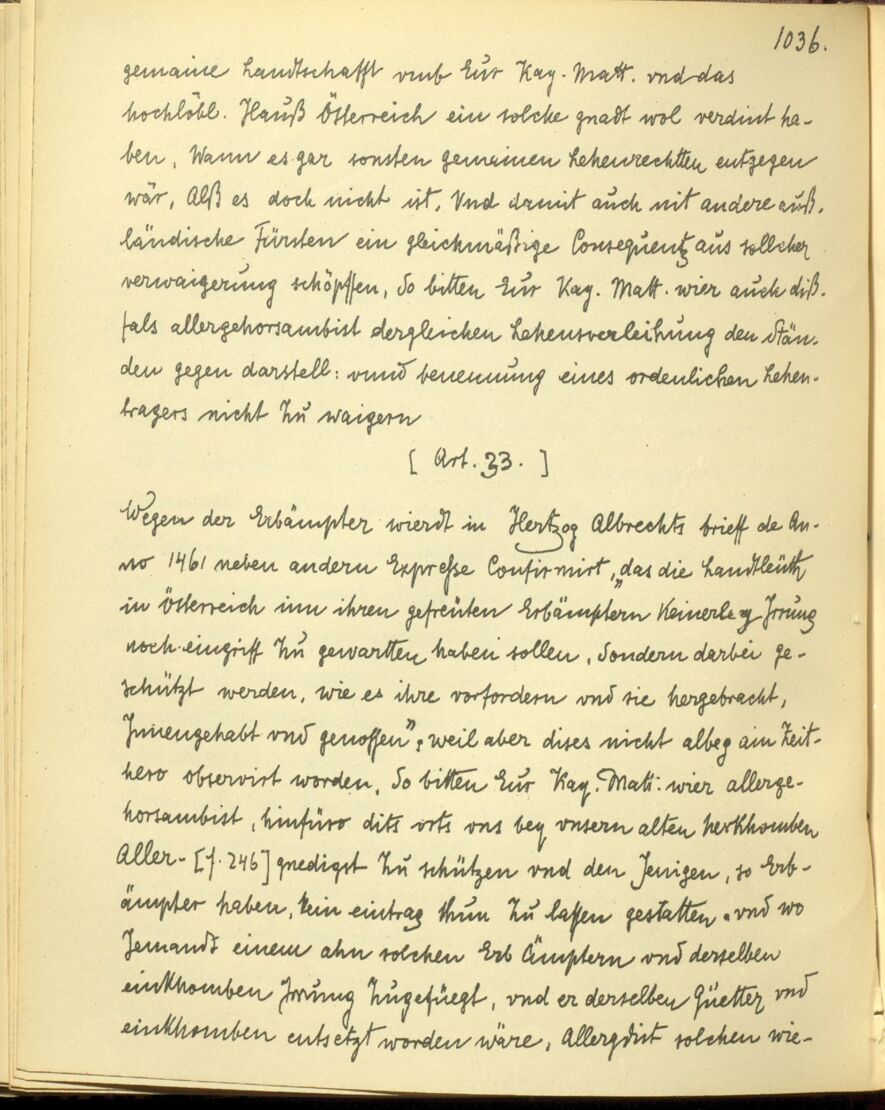 1036.
gemaine Landtschafft vmb Eur Kay. Matt. vnd das
hochlöbl. Hauß Österreich ein solche gnadt wol verdint ha-
ben, Wann es gar sonsten gemainen Lehenrechtten entgegen
wär, Alß es doch nicht ist, Vnd damit auch nit andere auß-
ländische Fürsten ein gleichmäßige Consequentz aus sollcher
verwaigerung schöpffen, So bitten Eur Kay. Matt. wier auch diß-
fals allergehorsambist dergleichen Lehensverleihung den Stän-
den gegen darstell: vnnd benennung eines ordenlichen Lehen-
tragers nicht zu waigern
[ Art. 33. ]
Wegen der Erbämpter wierdt in Hertzog Albrechts brieff de An-
no 1461 neben andern Expreße Confirmirt, „das die Landtleüth
in Österreich inn ihren gefreüten Erbämptern Keinerley Irrung
noch eingriff zu gewartten haben sollen, Sondern darbei ge-
schützt werden, wie es ihre vorfordern vnd sie hergebracht,
Innengehabt vnd genossen", weil aber dises nicht albeg ain Zeit-
hero observirt worden, So bitten Eur Kay. Matt: wier allerge-
horsambist, hinfüro dits orts vns bey vnsern alten herkhomben
Aller- [f. 246] gnedigst zu schützen vnd den Jenigen, so Erb-
ämpter haben, kein eintrag thun zu lassen gestatten. vnd wo
Jemandt einem ahn solchen Erb Ämptern vnd derselben
einkhomben Irrung zugefüegt, vnd er derselben Güetter vnd
einkhomben entsetzt worden wäre, Allergdist solchen wie-